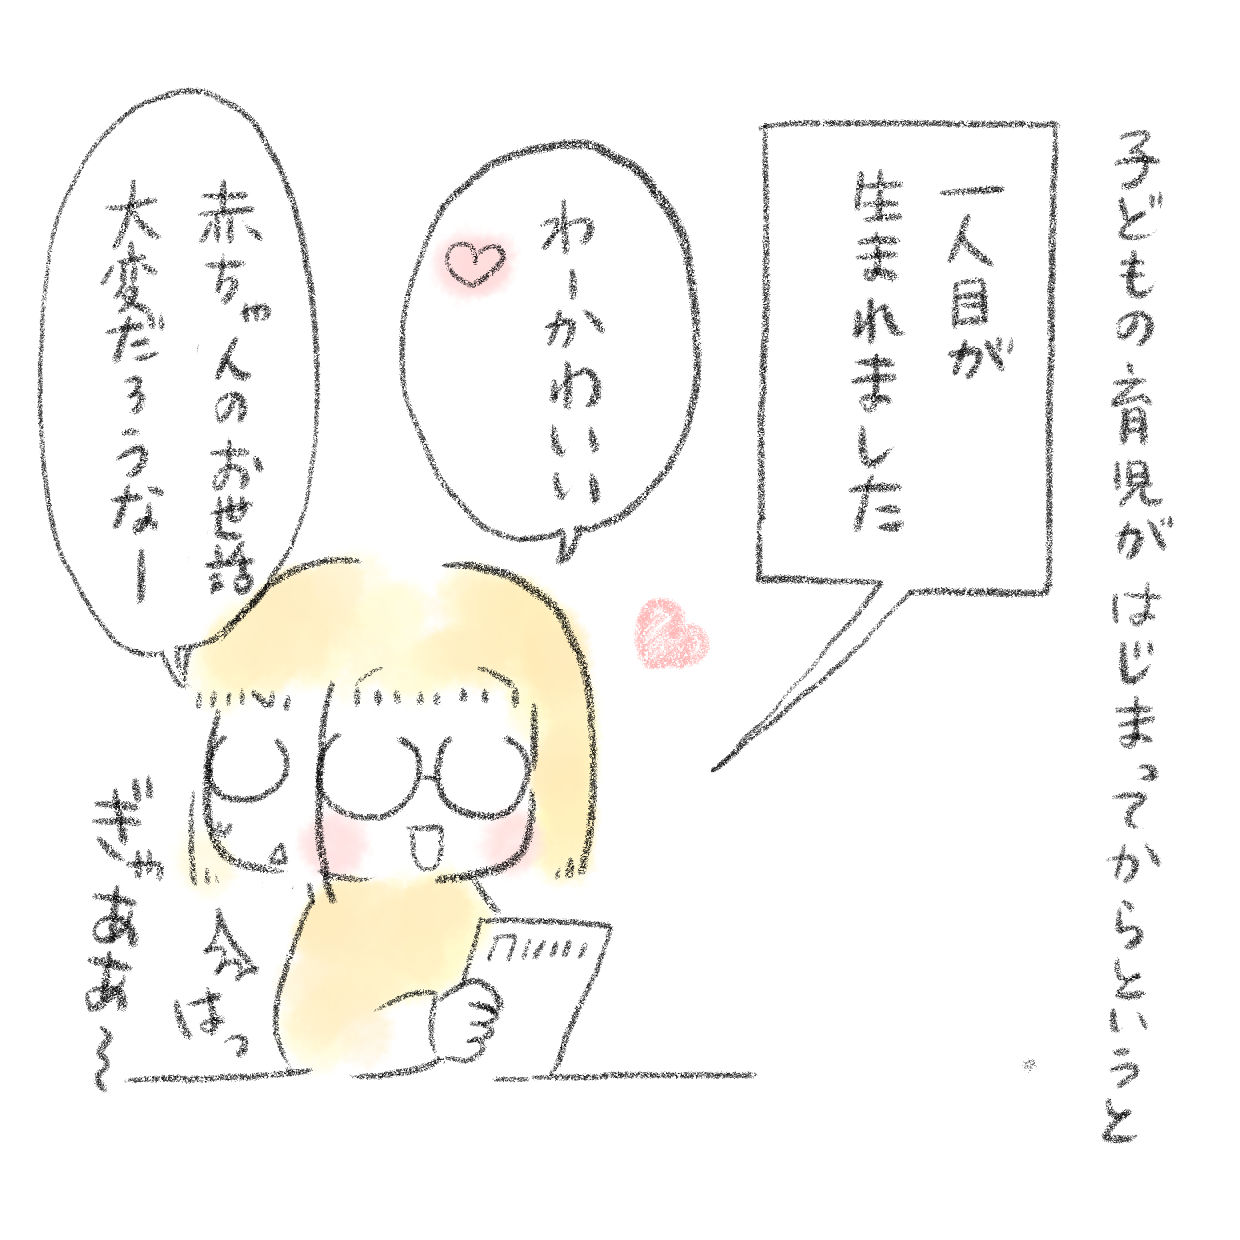 子どもの育児がはじまってからというと
一人目が
生まれました
わーかわいい♡
赤ちゃんのお世話
大変だろうなー
はっ
ぎゃああ〜